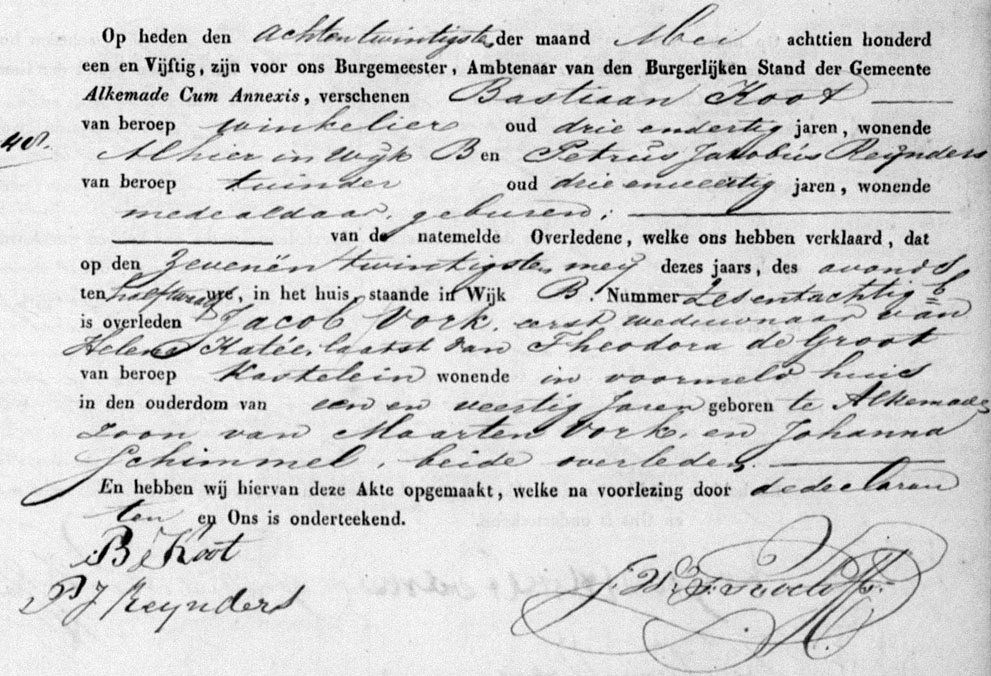 Op heden den achtentwintigste der maand Mei achttien honderd
een en Vijftig, zijn voor ons Burgemeester, Ambtenaar van den Burgerlijken Stand der Gemeente
Alkemade Cum Annexis, verschenen Bastiaan Koot
van beroep winkelier oud drie endertig jaren, wonende
Alhier in wijk B en Petrus Jakobus Reijnders
van beroep tuinder oud drie enveertig jaren, wonende
mede aldaar, geburen;
van de natemelde Overledene, welke ons hebben verklaard, dat
op den Zevenentwintigste mey dezes jaars, des avonds
ten half twaalf ure, in het huis, staande in Wijk B. Nummer Zesentachtig b
is overleden Jacob Vork, eerst weduwnaar van
Helena Katée, laatst van Theodora de Groot
van beroep Kastelein wonende in voormeld huis
in den ouderdom van een en veertig Jaren geboren te Alkemade
zoon van Maarten Vork, en Johanna
Schimmel, beide overleden.
En hebben wij hiervan deze Akte opgemaakt, welke na voorlezing door de declaran
ten en Ons is onderteekend.
B Koot
P J Reynders